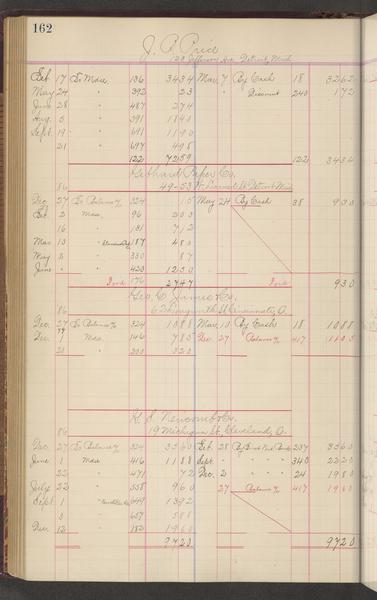 162
J. P. Price
123 Jefferson Ave Detroit, Mich
Feb. 17 To Mdse. 136 3434 Mar. 7 By Cash 18 3262
May 24 " 392 23 " Discount 240 172
June 28 " 487 274
Aug. 5 " 591 1840
Sept. 19 " 691 1190
21 " 697 498
122 7259 122 3434
Gebhard Paper Co.
86 49-53 Detroit Mich
Dec. 27 To Balance 324 15 May 24 By Cash 38 930
Feb. 2 Mdse. 96 203
16 " 131 72
Mar. 10 " 187 483
May 3 " 350 87
June " 420 1230
Ford 176 2747 Ford 930
Geo. C. James Co.
86 Cincinnati, O.
Dec. 27 To Balance 324 1088 Mar. 11 By Cash 18 1088
Dec. 1 Mdse. 146 785 Dec. 27 Balance 417 1105
21 " 200 320
H. S. Newcomb Co.
86 19 Michigan St., Cleveland, O.
Dec. 27 To Balance 324 3560 Feb. 28 By 237 3560
June 1 Mdse 416 1188 Sept. " 340 2220
22 " 471 72 Dec. 2 " 24 1980
July 22 " 558 960 27 Balance 417 1960
Sept. 1 " 649 1392
3 " 657 588
Dec. 12 " 182 1960
9720 9720